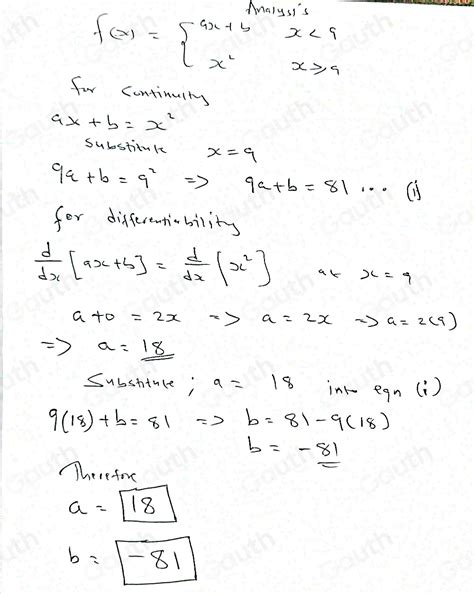 Analysis
f(x) = { ax + b   x < 9
x²   x ⩾ 9
for continuity
ax + b = x²
substitute   x = 9
9a + b = 9² => 9a + b = 81 ... (i)
for differentiability
d/dx [ax + b] = d/dx (x²)   at x = 9
a + 0 = 2x => a = 2x => a = 2(9)
=> a = 18
Substitute ; a = 18 into eqn (i)
9(18) + b = 81 => b = 81 - 9(18)
b = -81
Therefore
a = 18
b = -81
Gauth